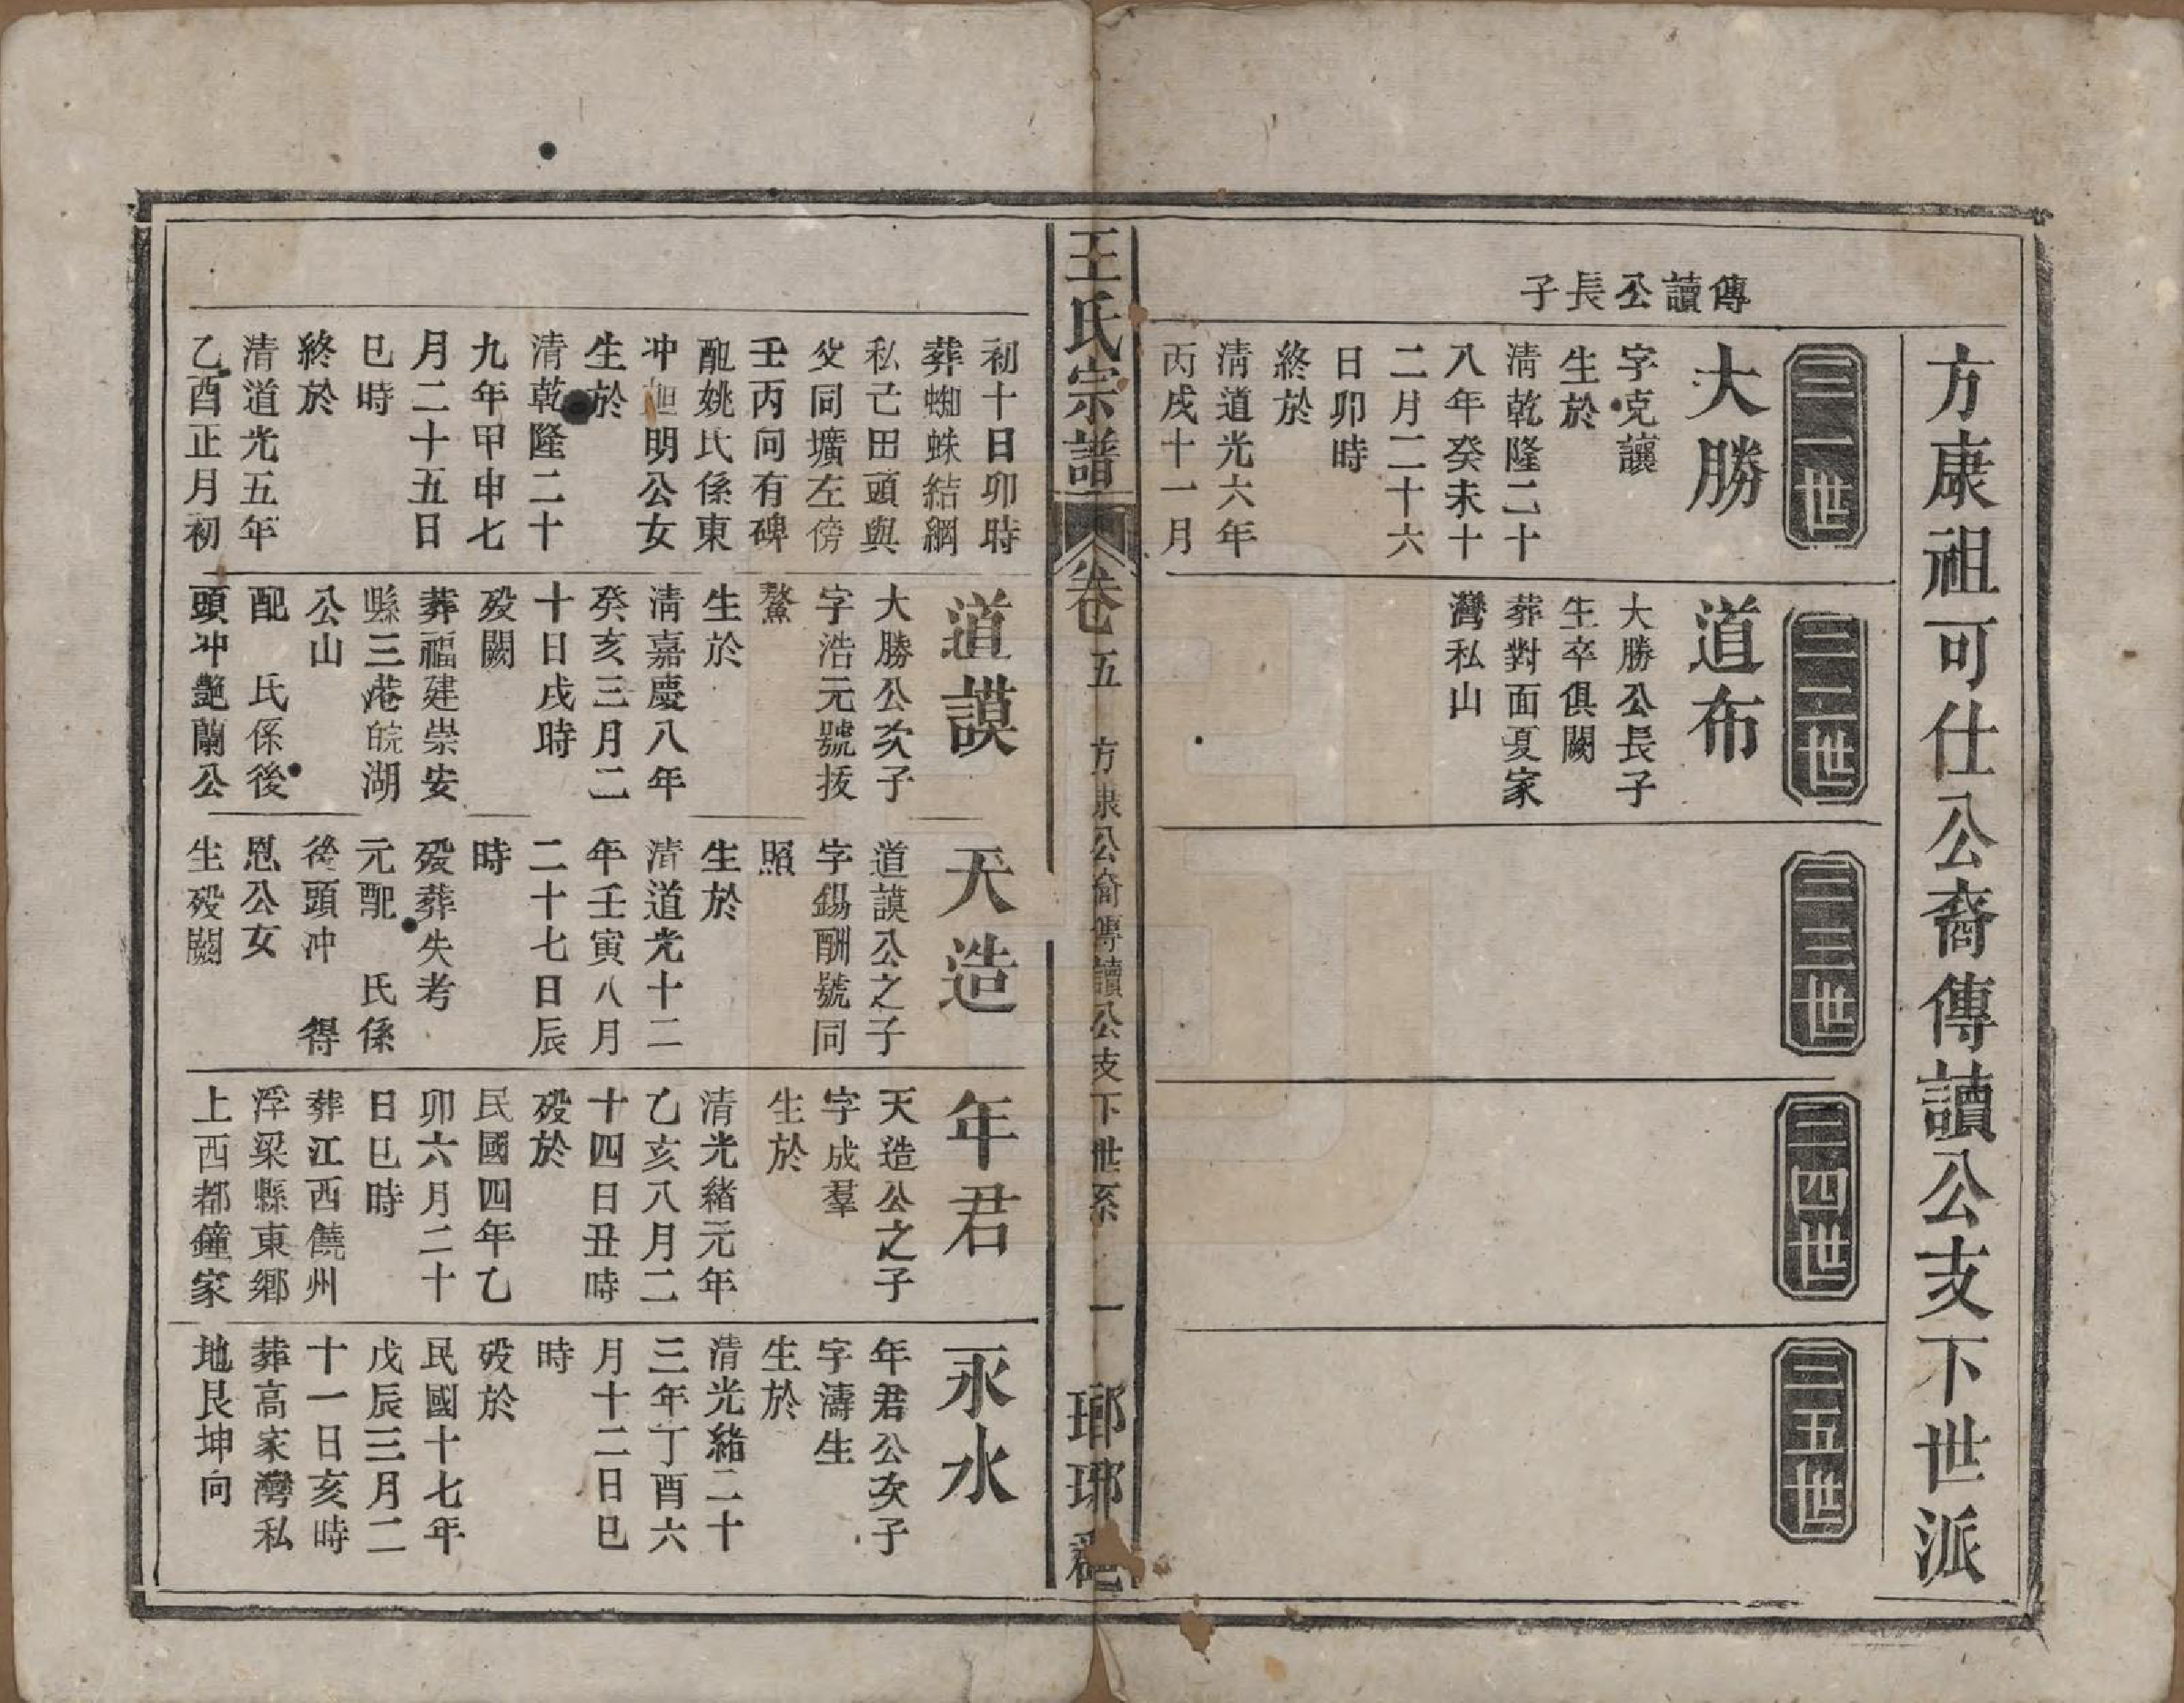 方康祖可仕公裔傳讀公支下世派
三一世
三二世
三三世
三四世
三五世
傳讀公長子
大勝
字克讓
生於
清乾隆二十
八年癸未十
二月二十六
日卯時
終於
清道光六年
丙戌十一月
道布
大勝公長子
生卒俱闕
葬對面夏家
灣私山
王氏宗譜
卷五
方康公裔傳讀公支下世系
一
瑯琊
初十日卯時
葬蜘蛛結網
私己田頭與
父同壙左傍
壬丙向有碑
配姚氏係東
冲旭明公女
生於
清乾隆二十
九年甲申七
月二十五日
巳時
終於
清道光五年
乙酉正月初
道謨
大勝公次子
字浩元號抜
鰲
生於
清嘉慶八年
癸亥三月二
十日戌時
歿闕
葬福建崇安
縣三港皖湖
公山
配 氏係後
頭冲艷蘭公
天造
道謨公之子
字錫酬號同
照
生於
清道光十二
年壬寅八月
二十七日辰
時
歿葬失考
元配 氏係
後頭冲 得
恩公女
生歿闕
年君
天造公之子
字成羣
生於
清光緒元年
乙亥八月二
十四日丑時
歿於
民國四年乙
卯六月二十
日巳時
葬江西饒州
浮梁縣東鄉
上西都鐘家
永水
年君公次子
字濤生
生於
清光緒二十
三年丁酉六
月十二日巳
時
歿於
民國十七年
戊辰三月二
十一日亥時
葬高家灣私
地艮坤向